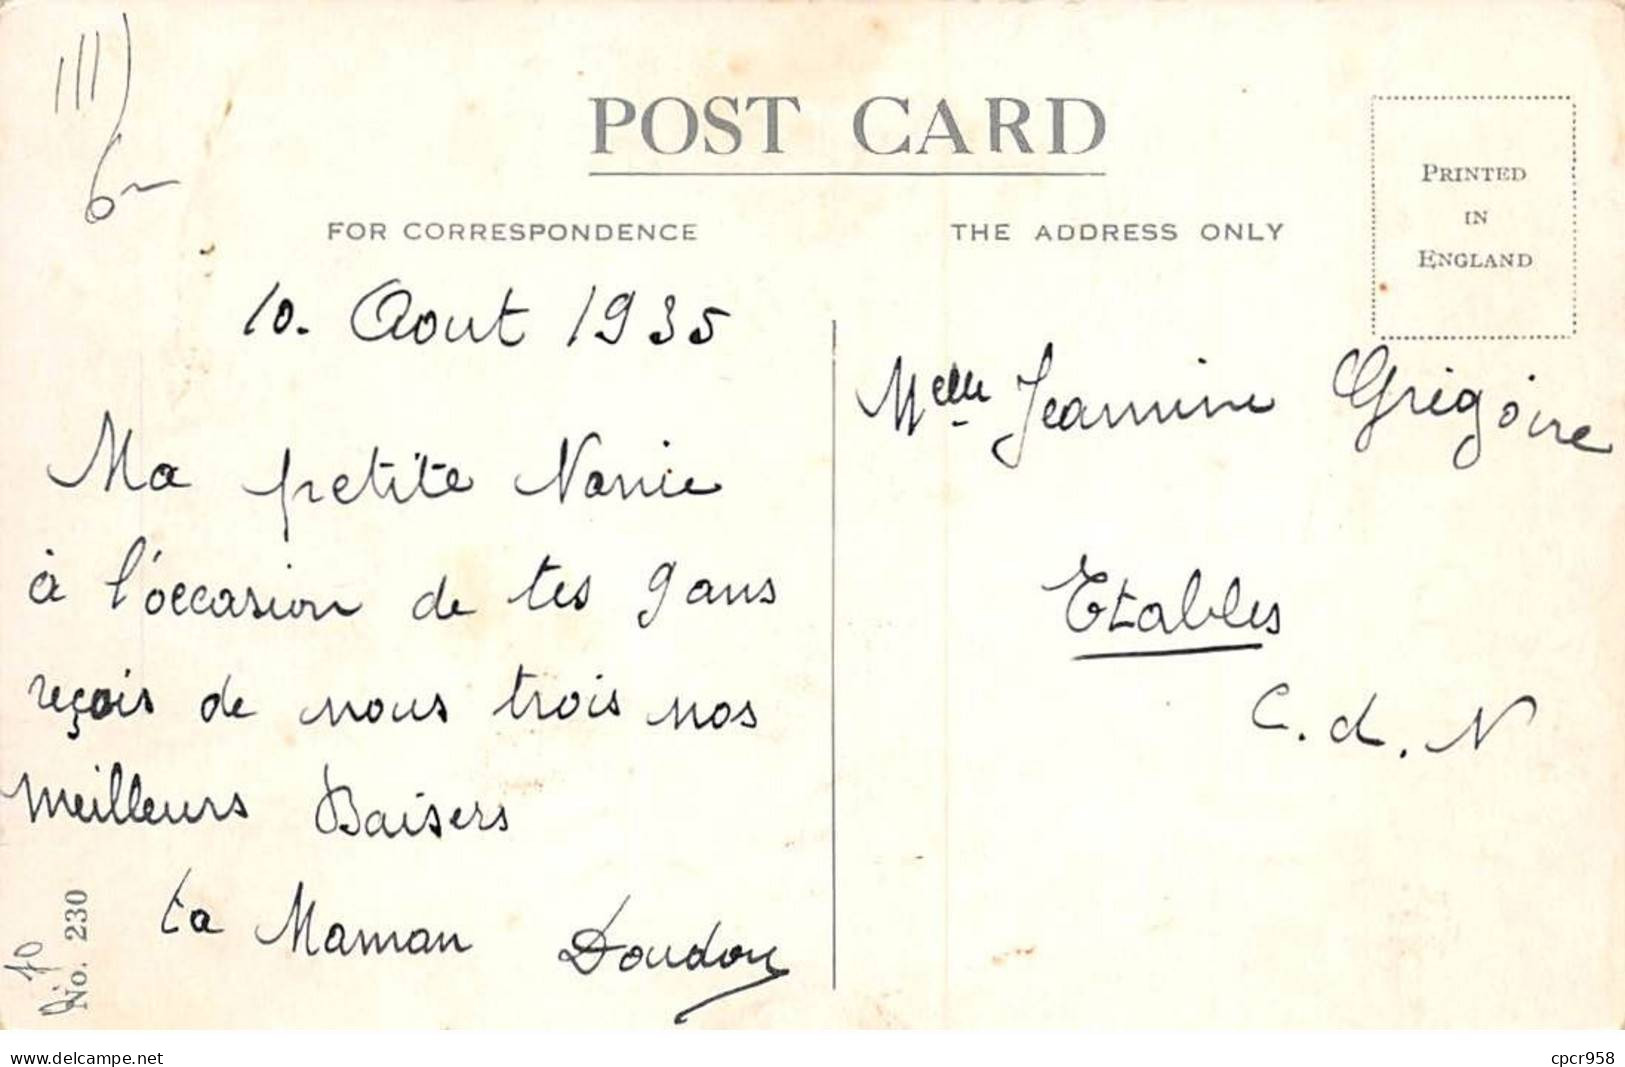 POST CARD
FOR CORRESPONDENCE
THE ADDRESS ONLY
PRINTED
IN
ENGLAND
10. Aout 1935
Ma petite Nanie
à l'occasion de tes 9 ans
reçois de nous trois nos
meilleurs Baisers
ta Maman Doudou
Melle Jeannine Grégoire
Etables
C. d. N
No. 230
www.delcampe.net
cpcr958